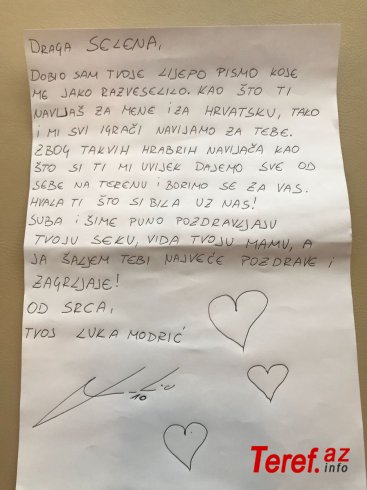 DRAGA SELENA,
DOBIO SAM TVOJE LIJEPO PISMO KOJE
ME JAKO RAZVESELILO. KAO ŠTO TI
NAVIJAŠ ZA MENE I ZA HRVATSKU, TAKO
I MI SVI IGRAČI NAVIJAMO ZA TEBE.
ZBOG TAKVIH HRABRIH NAVIJAČA KAO
ŠTO SI TI MI UVIJEK DAJEMO SVE OD
SEBE NA TERENU I BORIMO SE ZA VAS.
HVALA TI ŠTO SI BILA UZ NAS!
SUBA I ŠIME PUNO POZDRAVLJAJU
TVOJU SEKU, VIDA TVOJU MAMU, A
JA ŠALJEM TEBI NAJVEĆE POZDRAVE I
ZAGRLJAJE!
OD SRCA,
TVOJ LUKA MODRIĆ
10
Teref.az
info